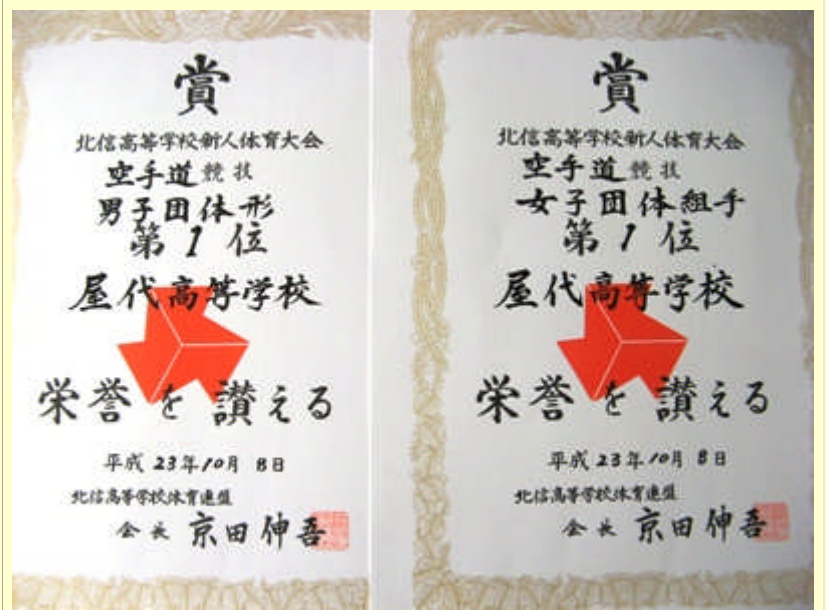 賞
北信高等学校新人体育大会
空手道競技
男子団体形
第1位
屋代高等学校
栄誉を讃える
平成23年10月8日
北信高等学校体育連盟
会長 京田伸吾
賞
北信高等学校新人体育大会
空手道競技
女子団体組手
第1位
屋代高等学校
栄誉を讃える
平成23年10月8日
北信高等学校体育連盟
会長 京田伸吾